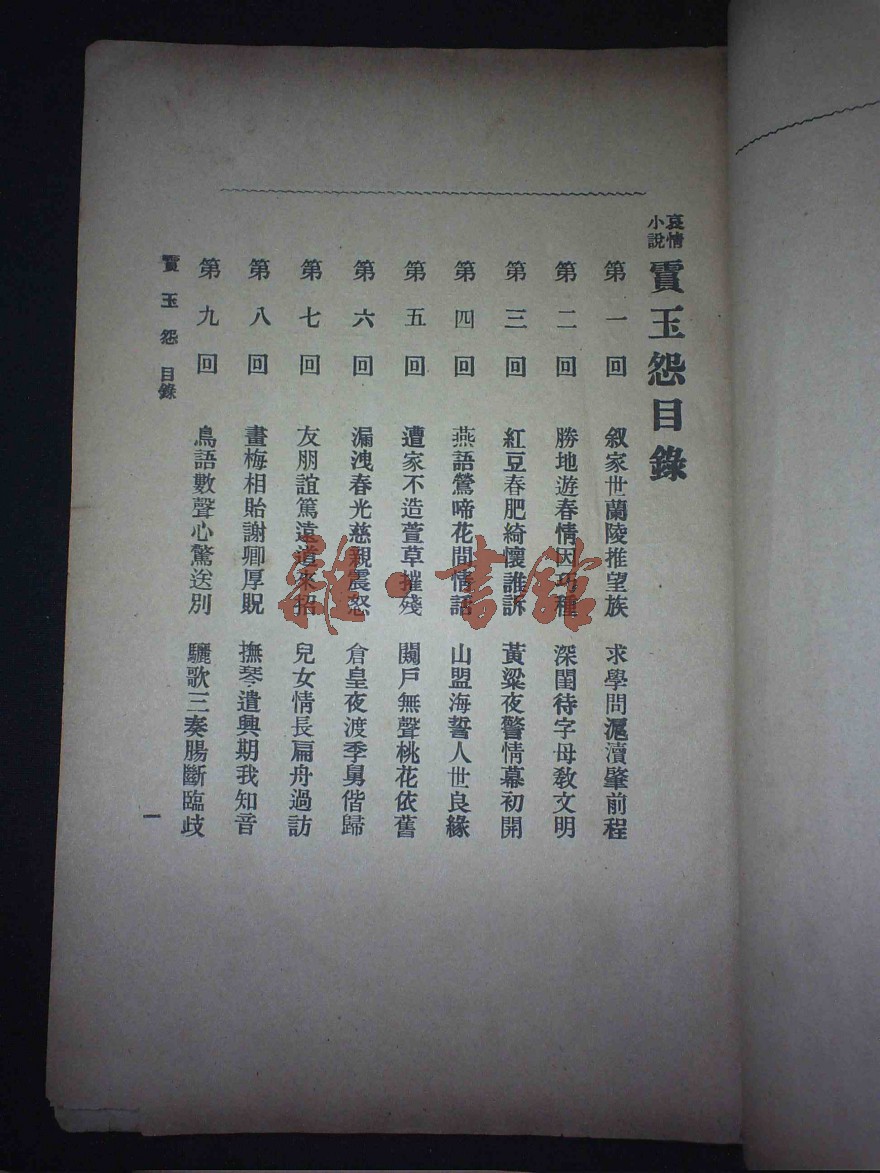 哀情小說
霣玉怨目錄
第一回 叙家世蘭陵推望族 求學問滬瀆肇前程
第二回 勝地遊春情因巧種 深閨待字母敎文明
第三回 紅豆春肥綺懷誰訴 黃粱夜警情幕初開
第四回 燕語鶯啼花間情話 山盟海誓人世良緣
第五回 遭家不造萱草摧殘 闃戶無聲桃花依舊
第六回 漏洩春光慈親震怒 倉皇夜渡季舅偕歸
第七回 友朋誼篤遠道來招 兒女情長扁舟過訪
第八回 畫梅相貽謝卿厚貺 撫琴遣興期我知音
第九回 鳥語數聲心驚送別 驪歌三奏腸斷臨歧
霣玉怨 目錄
一
雜·書館